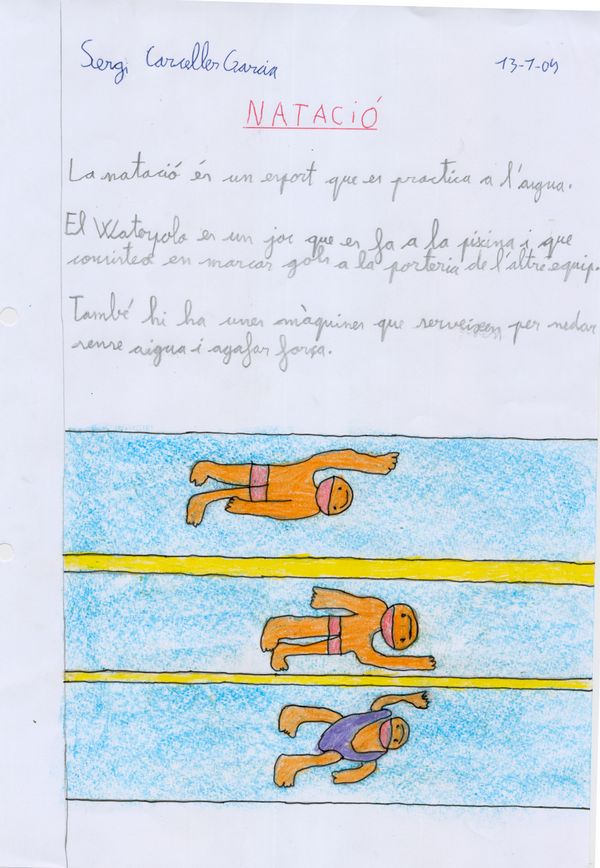 Sergi Carceller Garcia 13-1-09
NATACIÓ
La natació és un esport que es practica a l'aigua.
El Waterpolo es un joc que es fa a la piscina i que
consisteix en marcar gols a la porteria de l'altre equip.
També hi ha unes màquines que serveixen per nedar
sense aigua i agafar força.